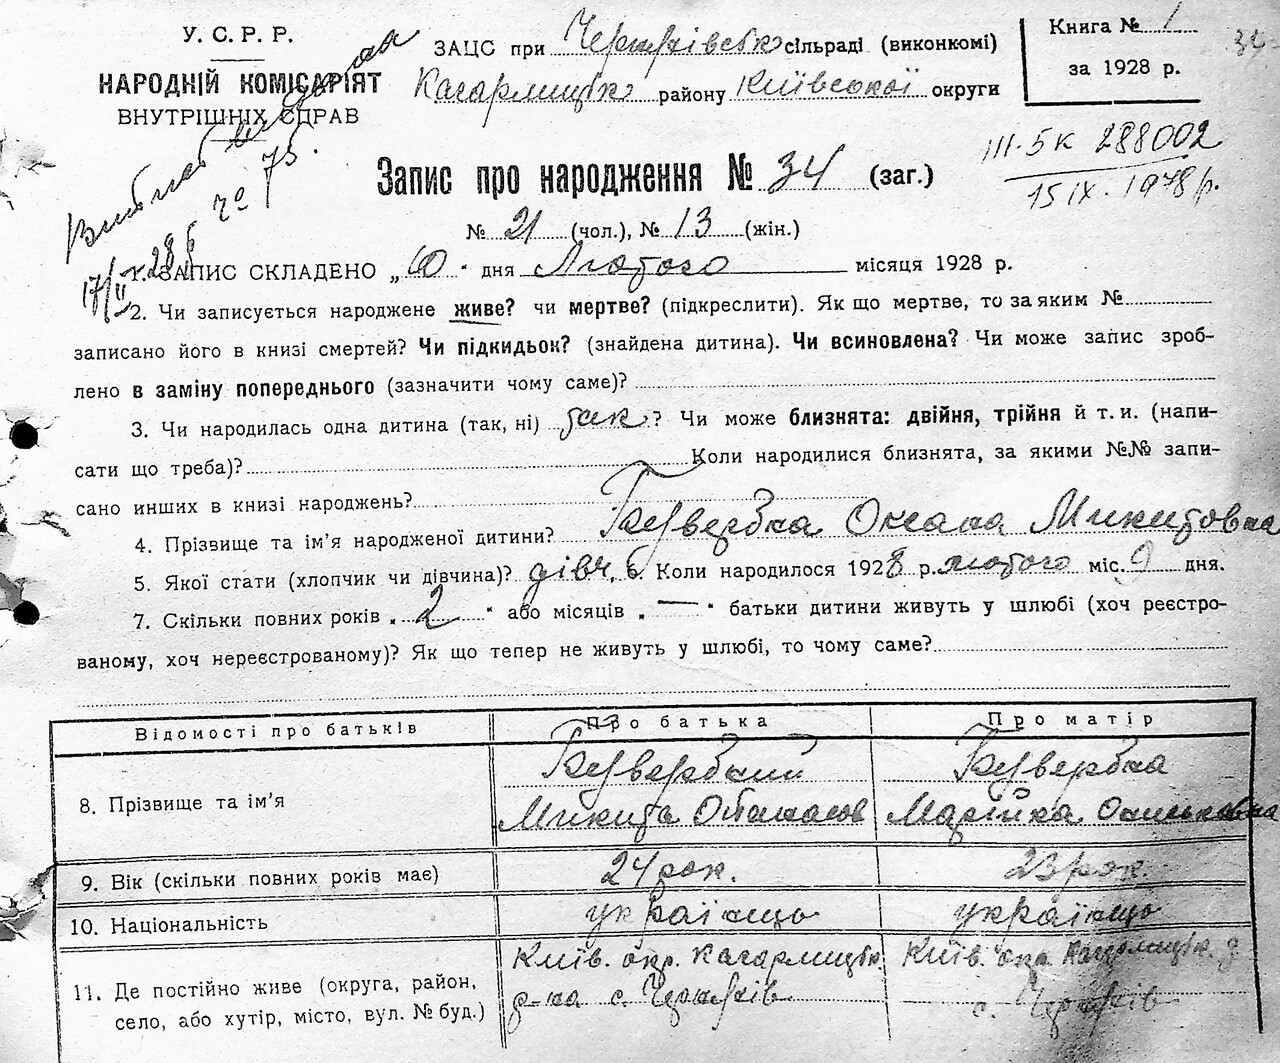 У. С. Р. Р.
НАРОДНІЙ КОМІСАРІЯТ
ВНУТРІШНІХ СПРАВ
ЗАЦС при сільраді (виконкомі)
Кагарлицьк району Київської округи
Книга № 1
за 1928 р.
34
III-БК 288002
15 IX. 1978 р.
Запис про народження № 34 (заг.)
№ 21 (чол.), № 13 (жін.)
1. ЗАПИС СКЛАДЕНО „10“ дня Лютого місяця 1928 р.
2. Чи записується народжене живе? чи мертве? (підкреслити). Як що мертве, то за яким №
записано його в книзі смертей? Чи підкидьок? (знайдена дитина). Чи всиновлена? Чи може запис зроб-
лено в заміну попереднього (зазначити чому саме)?
3. Чи народилась одна дитина (так, ні) так? Чи може близнята: двійня, трійня й т. и. (напи-
сати що треба)? Коли народилися близнята, за якими №№ запи-
сано инших в книзі народжень?
4. Прізвище та ім’я народженої дитини? Оксана Микитовна
5. Якої стати (хлопчик чи дівчина)? дівч. 6. Коли народилось 1928 р. лютого міс. 9 дня.
7. Скільки повних років „2“ або місяців „—“ батьки дитини живуть у шлюбі (хоч реєстро-
ваному, хоч нереєстрованому)? Як що тепер не живуть у шлюбі, то чому саме?
Відомості про батьків Про батька Про матір
8. Прізвище та ім’я Микита Марійка
9. Вік (скільки повних років має) 24 рок. 23 рок.
10. Національність українць українць
11. Де постійно живе (округа, район, село, або хутір, місто, вул. № буд.) Київ. окр. Кагарлицьк. р-на с. Київ. окр. Кагарлицьк. р. с.